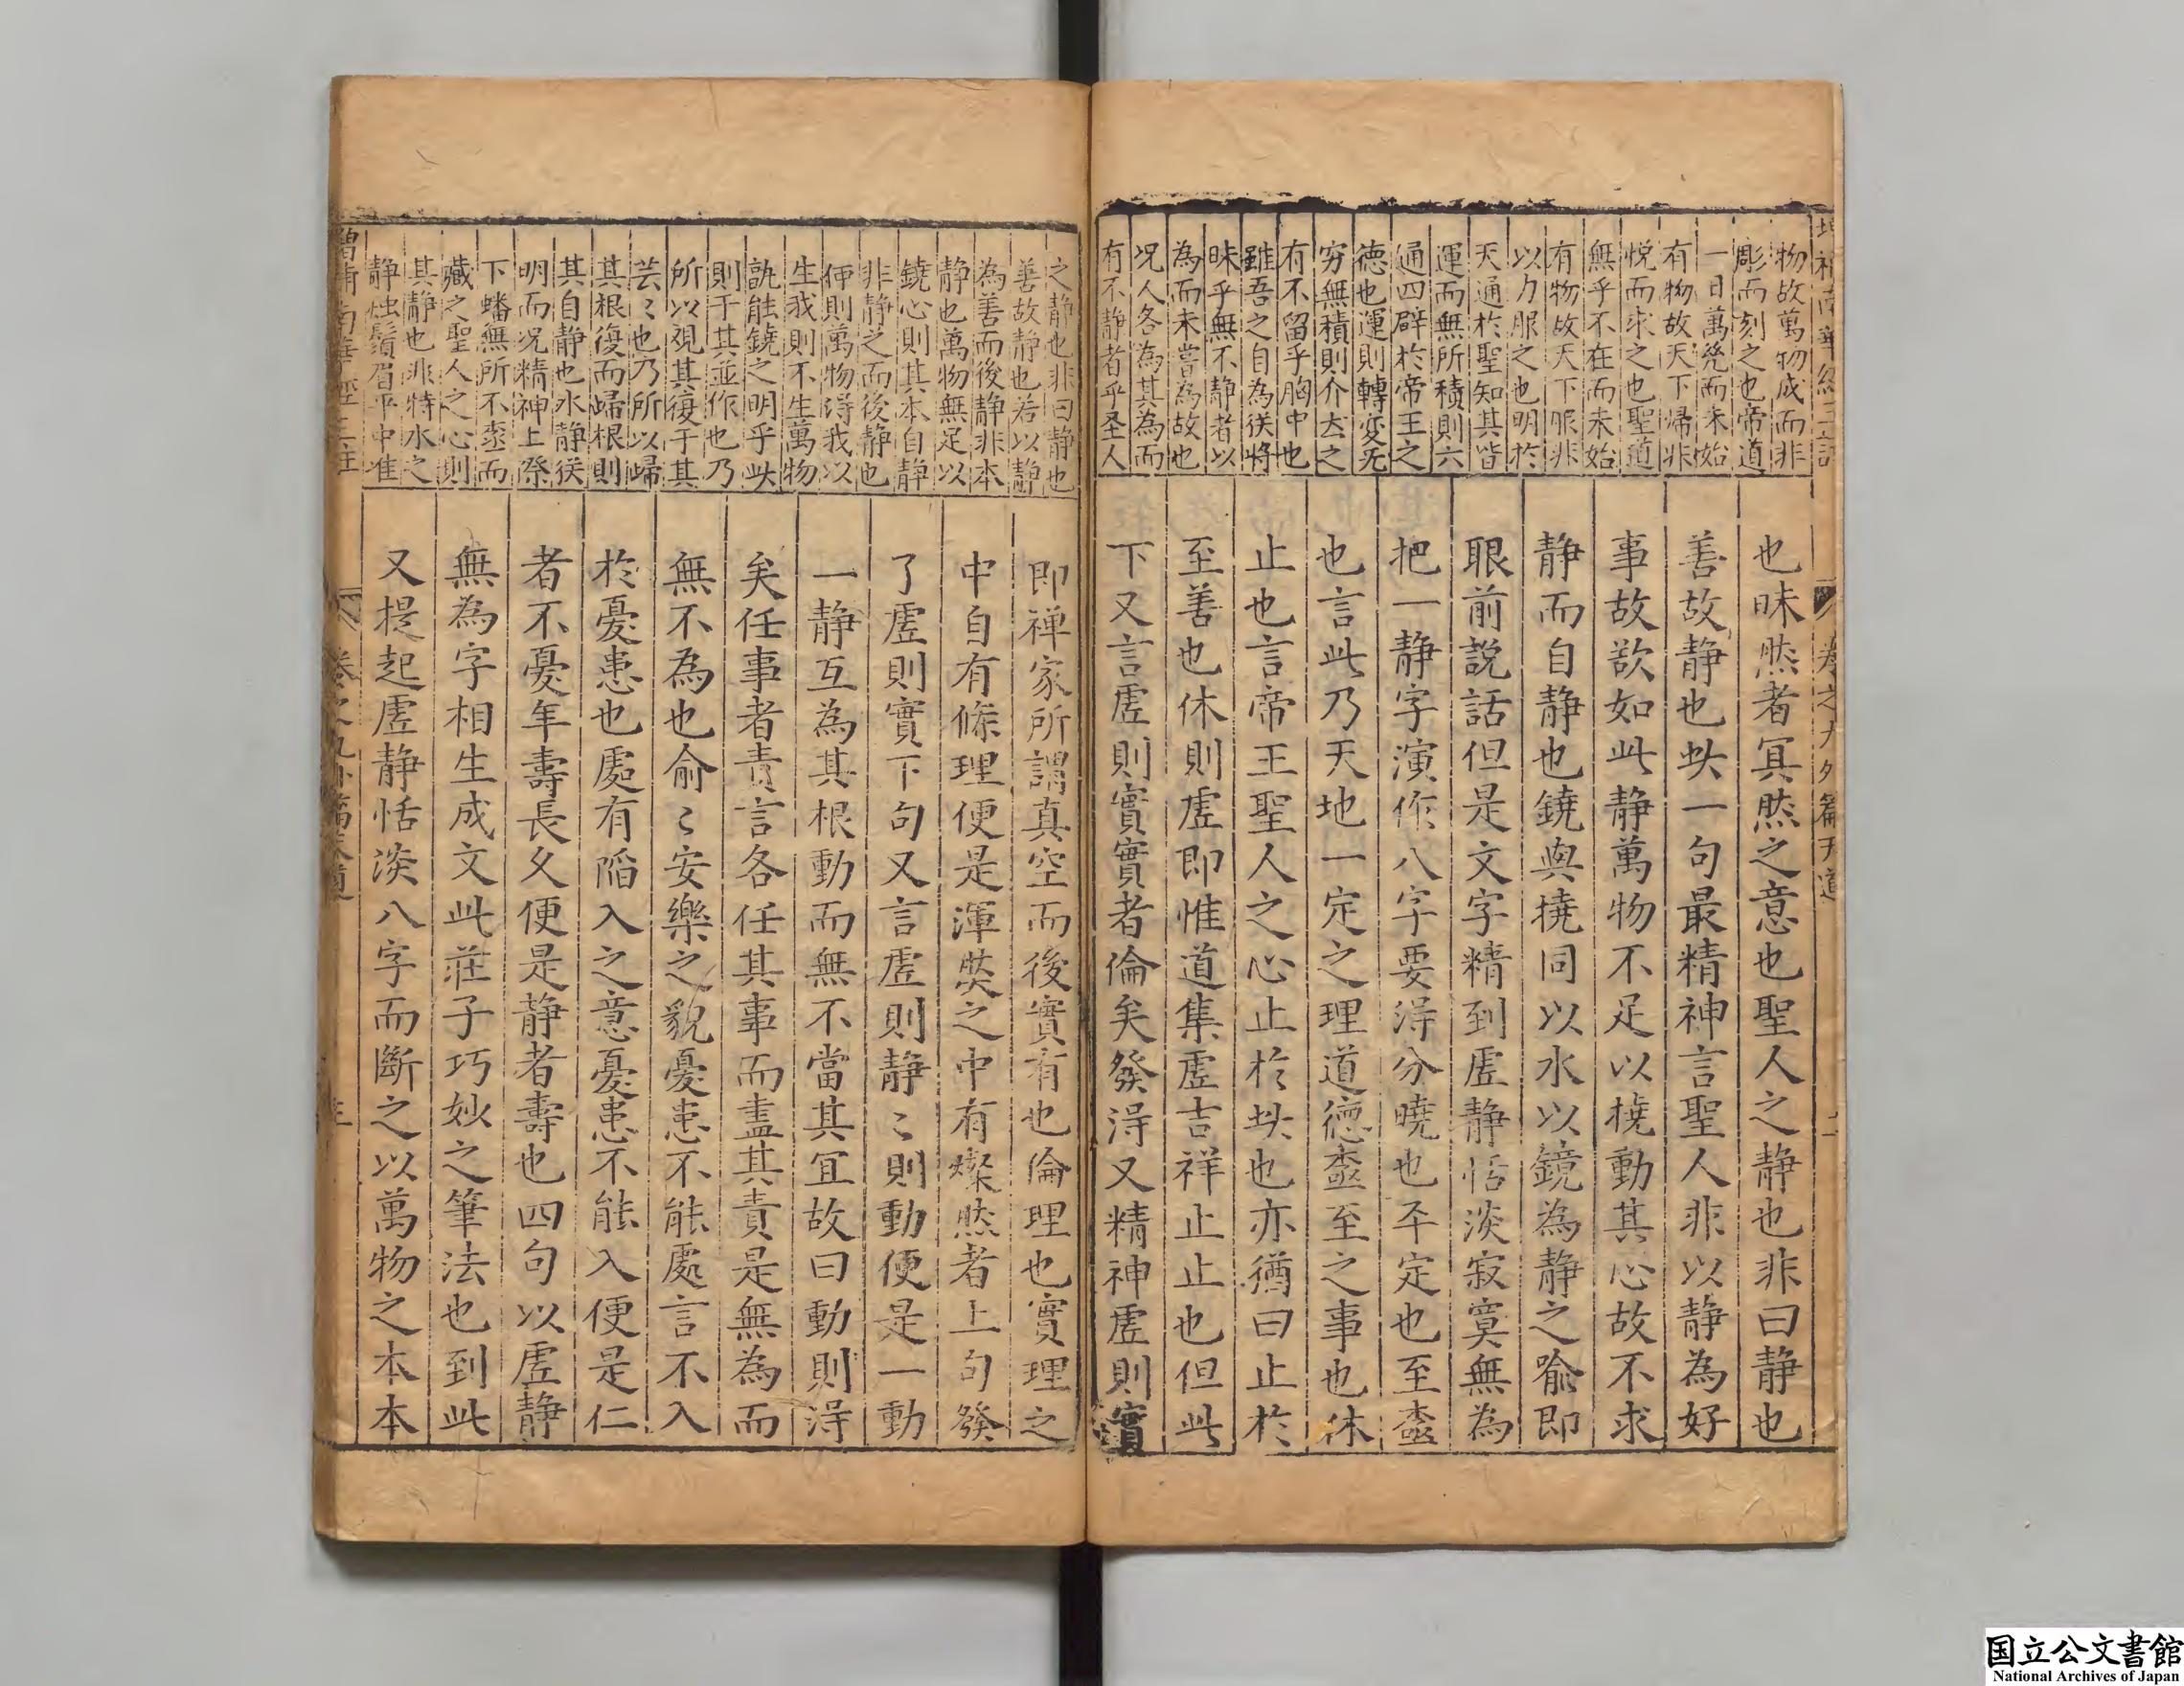 增補南華經三註
物故萬物成而非
彫而刻之也帝道
一日萬幾而未始
有物故天下歸非
悅而求之也聖道
無乎不在而未始
有物故天下服非
以力服之也明於
天通於聖知其皆
運而無所積則六
通四辟於帝王之
德也運則轉变旡
穷無積則介去之
有不留乎胸中也
雖吾之自為然将
昧乎無不静者以
為而未嘗為故也
况人各為其為而
有不静者乎圣人
卷之九外篇天道
也昧然者冥然之意也聖人之静也非曰静也
善故静也此一句最精神言聖人非以静為好
事故欲如此静萬物不足以撓動其心故不求
静而自静也鐃與撓同以水以鏡為静之喻即
眼前説話但是文字精到虛静恬淡寂寞無為
把一静字演作八字要淂分曉也平定也至盡
也言此乃天地一定之理道德盡至之事也休
止也言帝王聖人之心止於此也亦猶曰止於
至善也休則虛即惟道集虛吉祥止止也但此
下又言虛則實實者倫矣發淂又精神虛則實
之静也非曰静也
善故静也若以静
為善而後静非本
静也萬物無足以
鐃心則其本自静
非静之而後静也
便則萬物淂我以
生我則不生萬物
孰能鐃之明乎此
則于其並作也乃
所以覌其復于其
芸〻也乃所以㱕
其根復而㱕根則
其自静也水静然
明而况精神上際
下蟠無所不盡而
藏之聖人之心則
其静也非特水之
静烛鬚眉平中准
即禅家所謂真空而後實有也倫理也實理之
中自有條理便是渾然之中有燦然者上句發
了虛則實下句又言虛則静〻則動便是一動
一静互為其根動而無不當其宜故曰動則淂
矣任事者責言各任其事而盡其責是無為而
無不為也俞〻安樂之貌憂患不能處言不入
於憂患也處有陷入之意憂患不能入便是仁
者不憂年壽長久便是静者壽也四句以虛静
無為字相生成文此莊子巧妙之筆法也到此
又提起虛静恬淡八字而斷之以萬物之本本
增補南華經三註
卷之九外篇天道
国立公文書館
National Archives of Japan